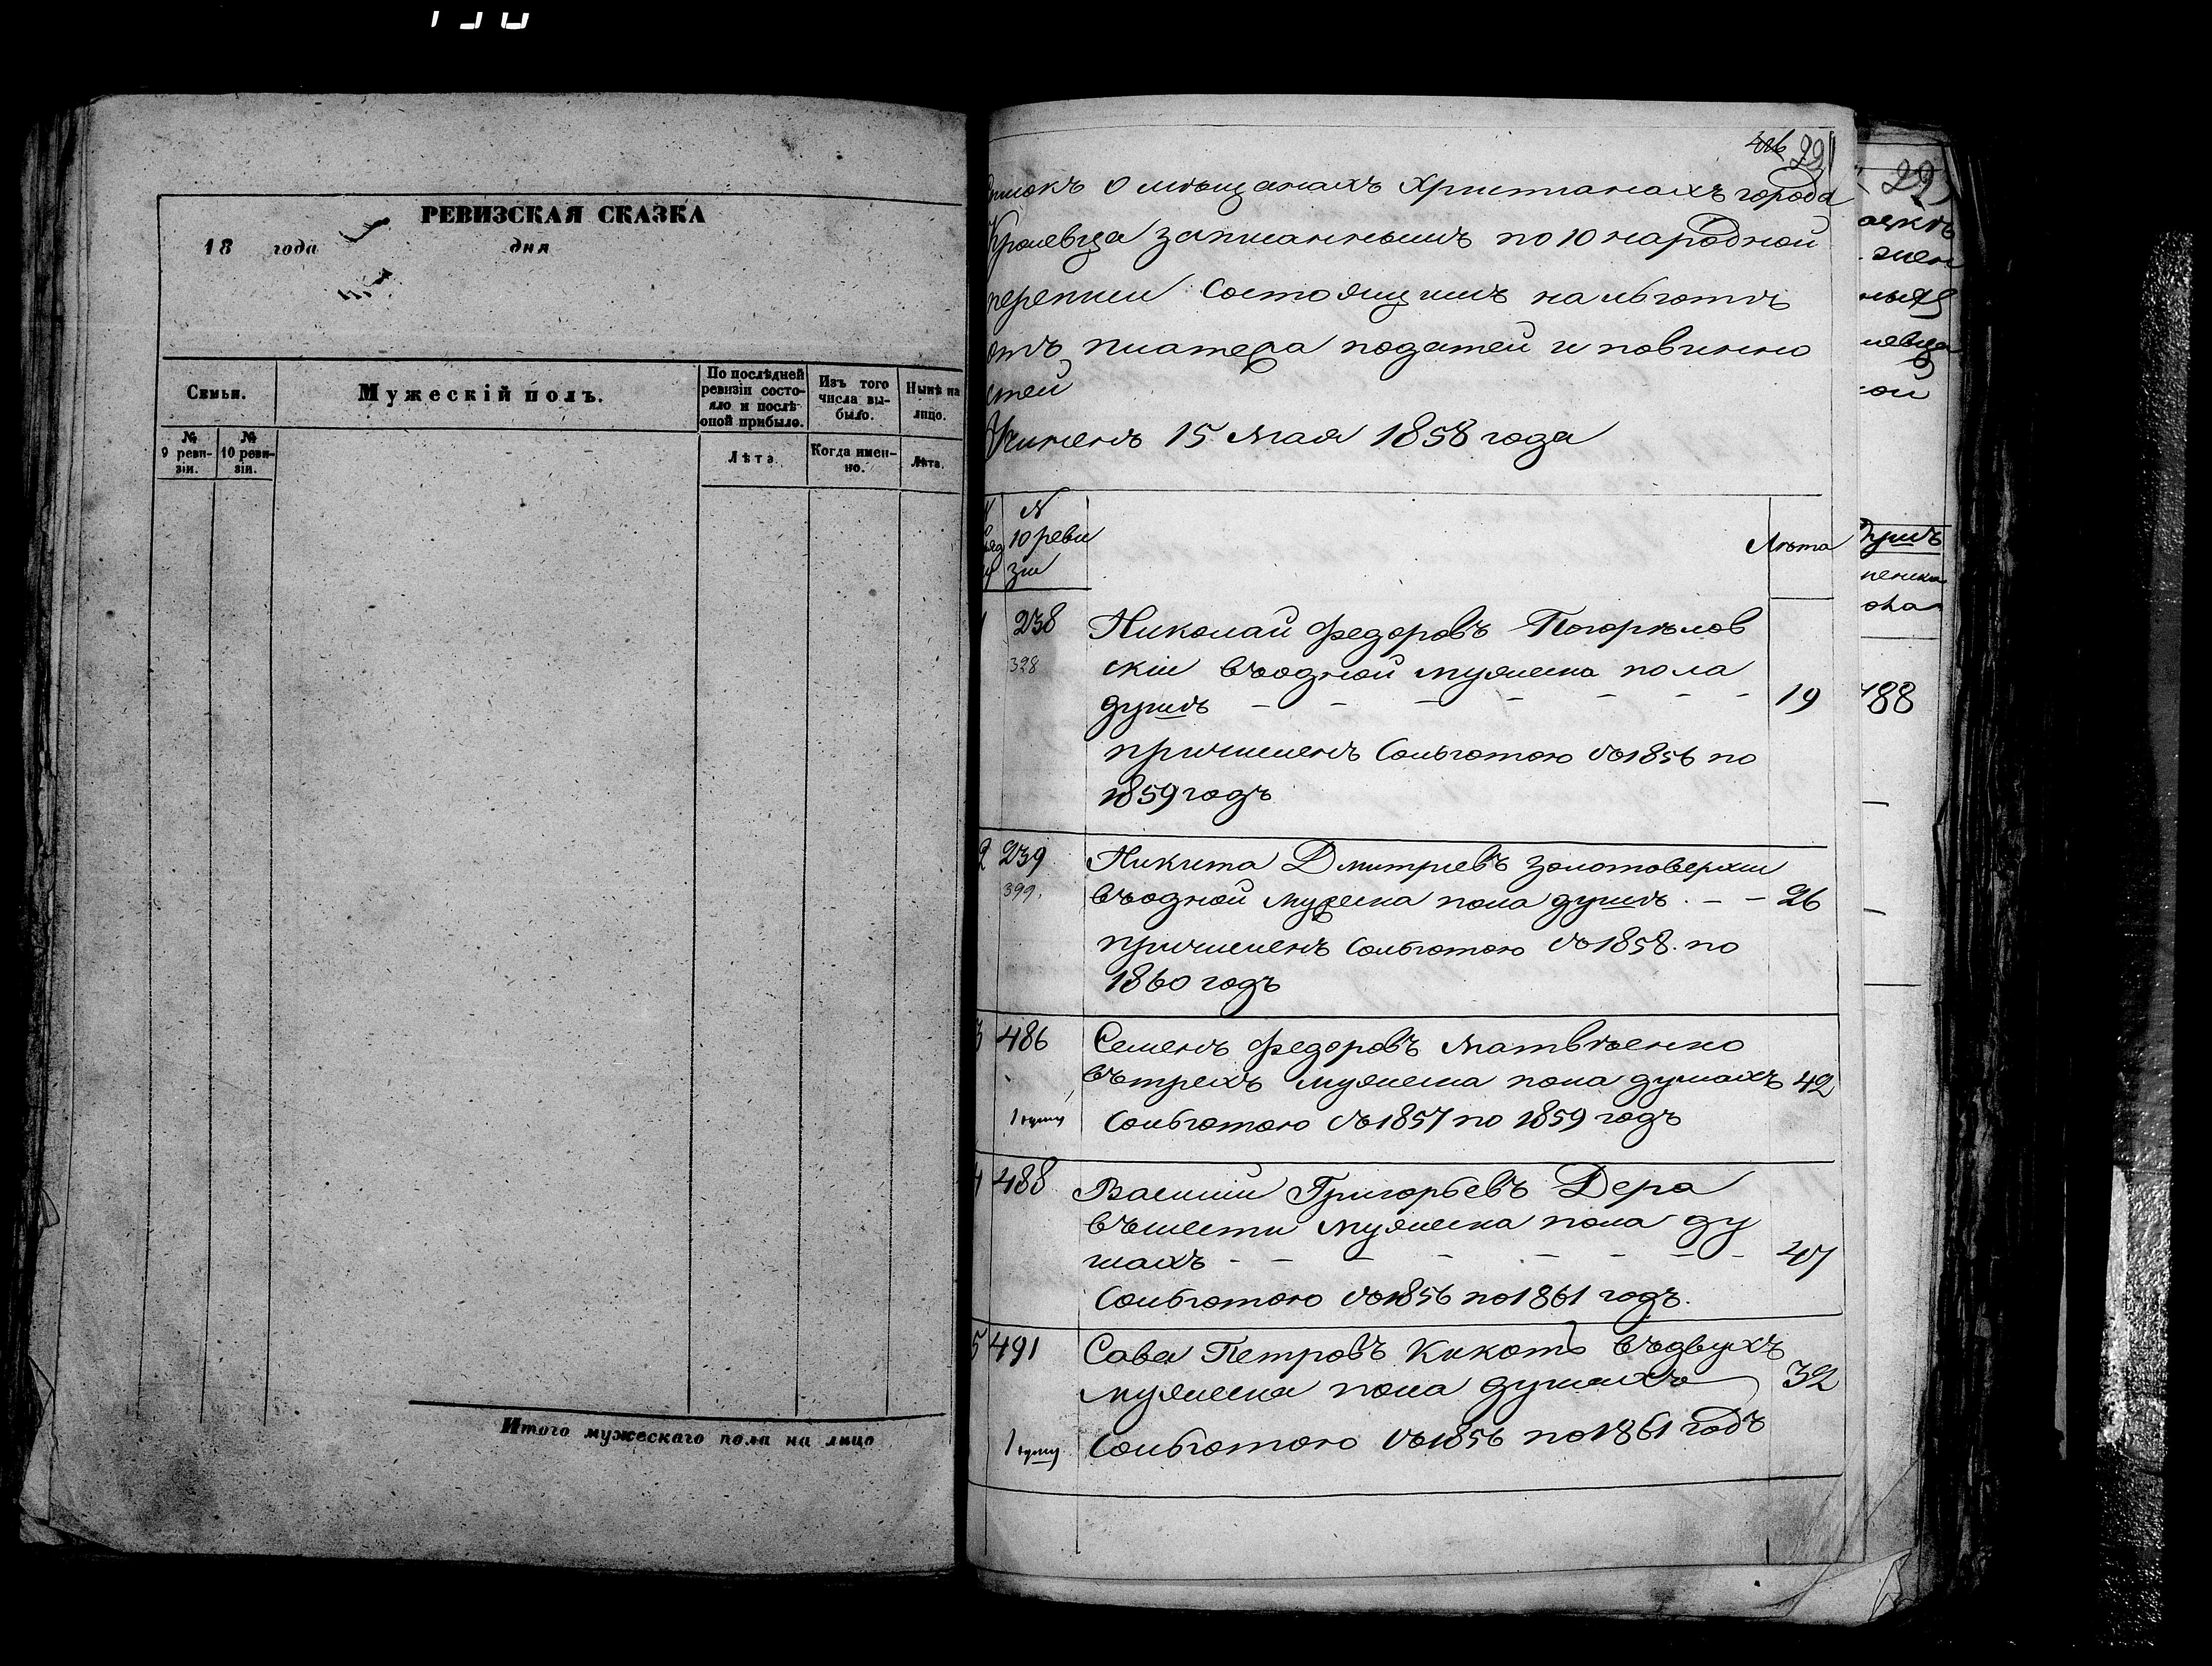 РЕВИЗСКАЯ СКАЗКА
18 года дня
Семьи.
Мужескій полъ.
По послѣдней ревизіи состояло и послѣ оной прибыло.
Изъ того числа выбыло.
Нынѣ на лицо.
№ 9 ревизіи.
№ 10 ревизіи.
Лѣта.
Когда именно.
Лѣта.
Итого мужескаго пола на лицо
291
Списокъ о мѣщанахъ христіанахъ города
Кролевца записаннымъ по 10 народной
переписи состоящимъ на льготѣ
отъ платежа податей и повинно
стей
Учиненъ 15 Мая 1858 года
N
10 реви
зіи
Лѣта
1 238 Николай Федоровъ Погорѣлов
328 скій въ одной мужеска пола
душѣ - - - - - - - 19
причисленъ со льготою съ 1856 по
1859 годъ
2 239 Никита Дмитріевъ Золотоверхій
399. въ одной мужеска пола душѣ. - - 26
причисленъ со льготою съ 1858. по
1860 годъ
3 486 Семенъ Федоровъ Матвѣенко
въ трехъ мужеска пола душахъ 42
со льготою съ 1857 по 1859 годъ
4 488 Василій Григорьевъ Дера
въ шести мужеска пола ду
шахъ - - - - - - - 47
со льготою съ 1856 по 1861 годъ.
5 491 Сава Петровъ Кикоть въ двухъ
мужеска пола душахъ 32
со льготою съ 1856 по 1861 годъ
488